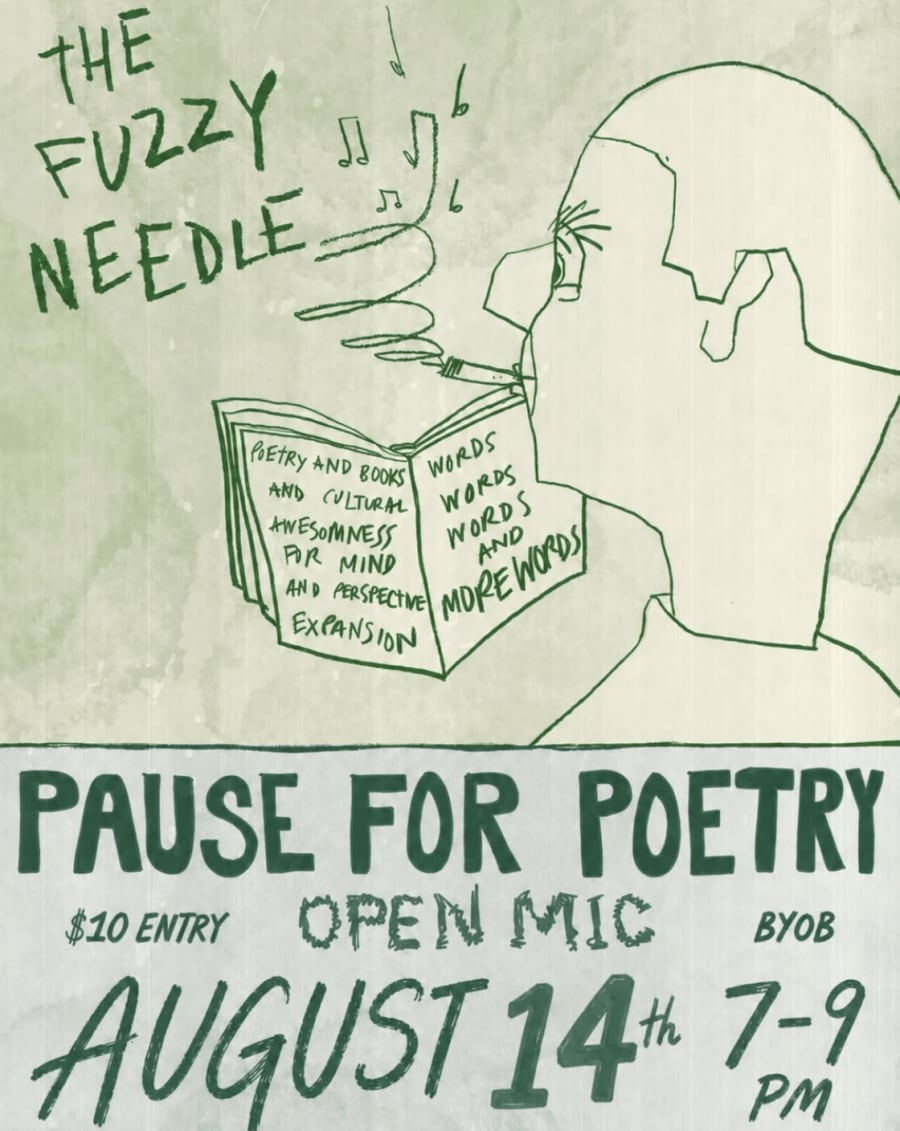 THE
FUZZY
NEEDLE
POETRY AND BOOKS
AND CULTURAL
AWESOMNESS
FOR MIND
AND PERSPECTIVE
EXPANSION
WORDS
WORDS
WORDS
AND
MORE WORDS
PAUSE FOR POETRY
$10 ENTRY OPEN MIC BYOB
AUGUST 14th 7-9
PM